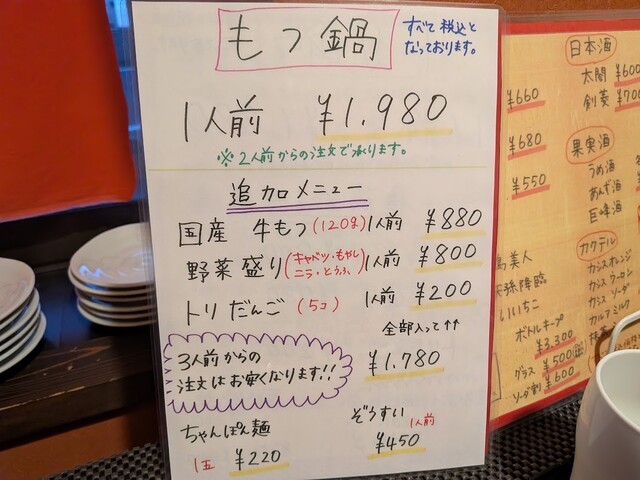 もつ鍋
すべて税込と
なっております。
1人前 ¥1,980
※2人前からの注文で承ります。
追加メニュー
国産 牛もつ(120g) 1人前 ¥880
野菜盛り(キャベツ・もやし ニラ・とうふ) 1人前 ¥800
トリだんご (5コ) 1人前 ¥200
全部入って↑↑
3人前からの
注文はお安くなります!!
¥1,780
ちゃんぽん麺
1玉 ¥220
ぞうすい
1人前
¥450
¥660
¥680
¥550
日本酒
太閤 ¥600
剣菱 ¥700
果実酒
うめ酒
あんず酒
巨峰酒
カクテル
カシスオレンジ
カシスウーロン
カシスソーダ
カルアミルク
美人
降臨
いいちこ
ボトルキープ
¥3,300
グラス ¥500
ソーダ割 ¥600